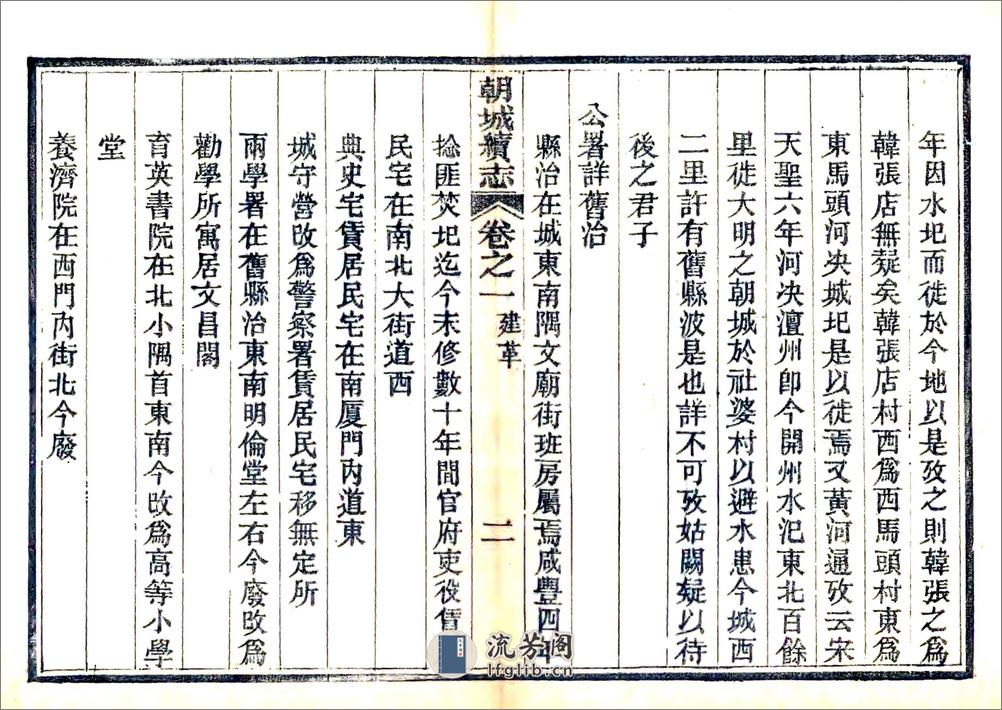 年因水圯而徙於今地以是攷之則韓張之爲
韓張店無疑矣韓張店村西爲西馬頭村東爲
東馬頭河決城圯是以徙焉又黃河通攷云宋
天聖六年河決澶州卽今開州水氾東北百餘
里徙大明之朝城於社婆村以避水患今城西
二里許有舊縣波是也詳不可攷姑闕疑以待
後之君子
公署詳舊治
縣治在城東南隅文廟街班房屬焉咸豐四年
朝城續志 卷之一 建革 二
捻匪焚圯迄今未修數十年間官府吏役賃
民宅在南北大街道西
典史宅賃居民宅在南厦門內道東
城守營改爲警察署賃居民宅移無定所
兩學署在舊縣治東南明倫堂左右今廢改爲
勸學所寓居文昌閣
育英書院在北小隅首東南今改爲高等小學
堂
養濟院在西門內街北今廢
流芳阁
lfglib.cn